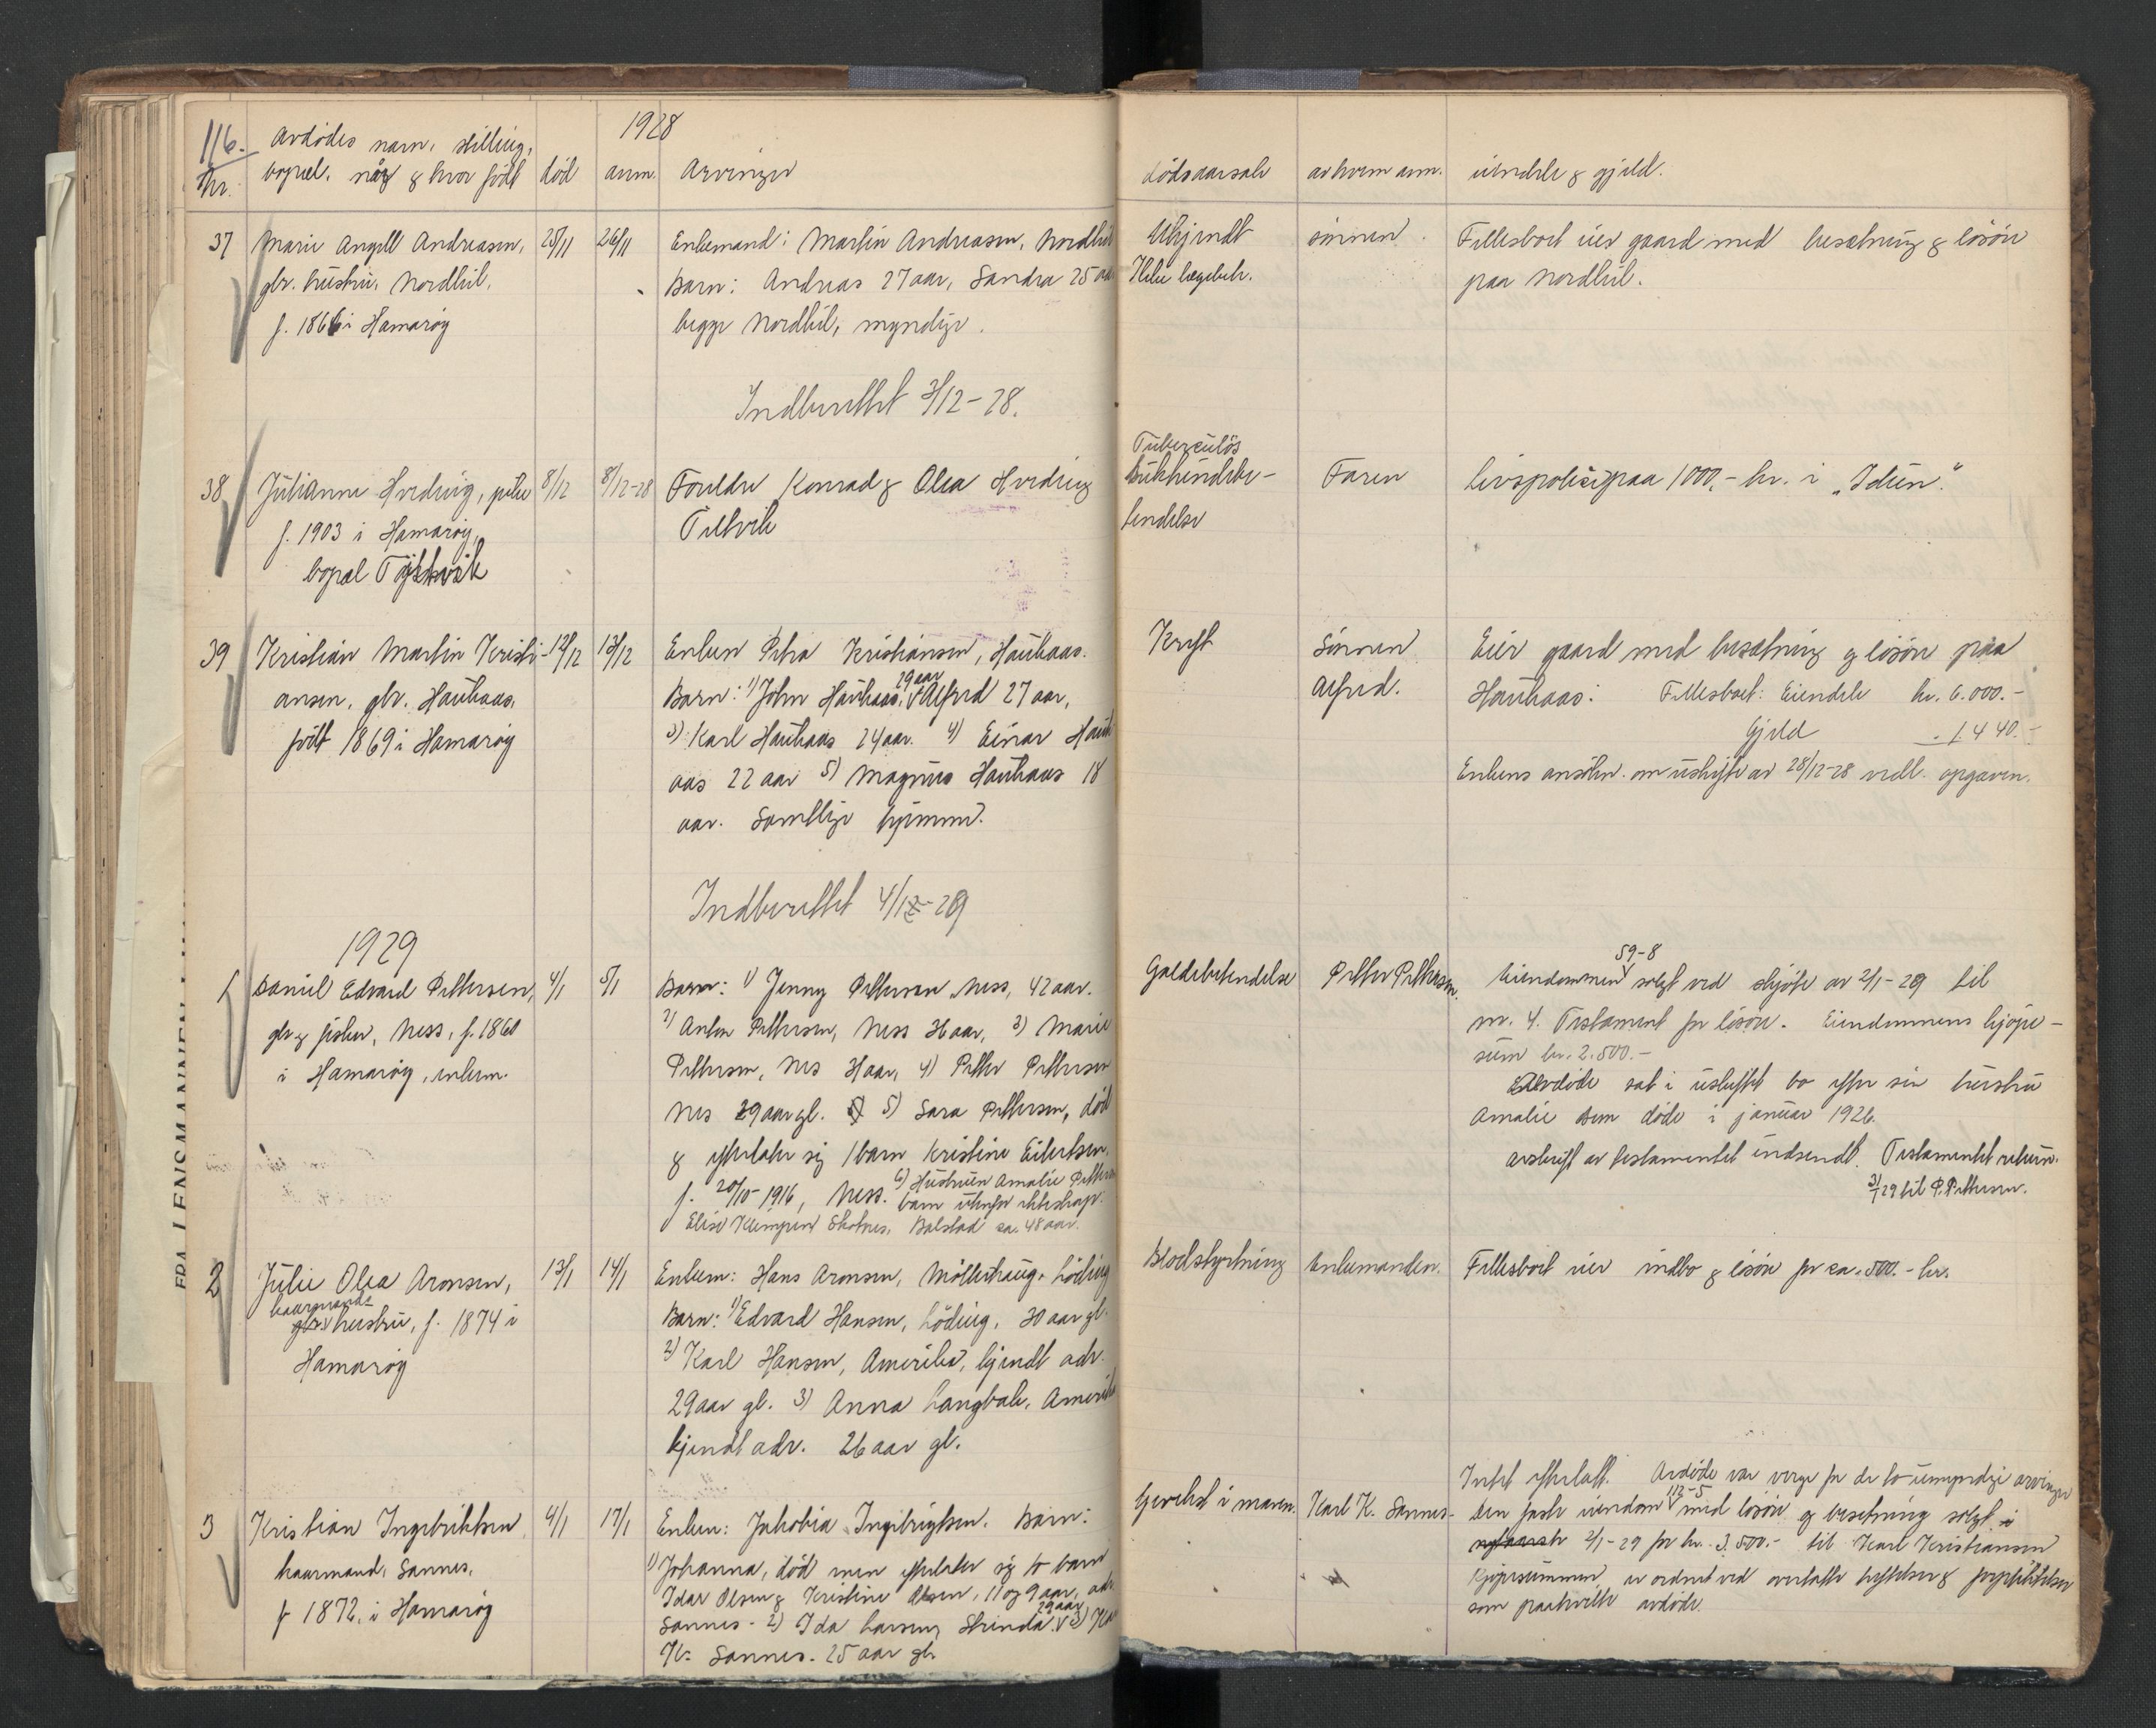 116.
1928
Nr.
Avdödes navn, stilling,
bopæl, når & hvor född
död
anm.
Arvinger
dödsaarsak
av hvem anm.
eiendele & gjeld.
37
Marie Angell Andreasen,
gbr. hustru, Nordbul,
f. 1866 i Hamaröy
25/11
26/11
Enkemand: Martin Andreasen, Nordbul
Barn: Andreas 27 aar, Sandra 25 aar
begge Nordbul, myndige.
Ukjendt
Ikke lægebeh.
sönnen.
Fællesboet eier gaard med besætning & lösöre
paa Nordbul.
Indberettet 3/12-28.
38
Julianne Hredvig, pike
f. 1903 i Hamaröy,
bopæl
8/12
8/12-28
Foreldre Konrad & Olea Hredvig
Tuberculös
Bukhindebe-
tendelse
Faren
Livspolise paa 1000,- kr. i „Idun".
39
Kristian Martin Kristi-
ansen, gbr. Haukaas,
född 1869 i Hamaröy
12/12
13/12
Enken Petra Kristiansen, Haukaas.
29 aar
Barn: 1) John Haukaas, Alfred 27 aar,
3) Karl Haukaas 24 aar. 4) Einar Hauk
aas 22 aar 5) Magnus Haukaas 18
aar. Samtlige hjemme.
Kreft
Sönnen
Alfred.
Eier gaard med besætning & lösöre paa
Haukaas: Fællesboet: Eiendele kr. 6.000.-
Gjeld - 1.440.-
Enkens ansökn. om uskifte av 28/12-28 vedl. opgaven.
Indberettet 4/1-29
1929
1
Daniel Edvard Pettersen,
gbr & fisker, Ness, f. 1860
i Hamaröy, enkem.
4/1
5/1
Barn: 1) Jenny Pettersen Ness, 42 aar.
2) Anton Pettersen, Ness 36 aar, 3) Marie
Pettersen, Nes aar, 4) Petter Pettersen
Nes 29 aar gl. 5) Sara Pettersen, död
& efterlater sig 1 barn Kristine Eilertsen,
f. 20/10-1916, Ness. 6) Hustruen Amalie Pettersen
barn utenfor ekteskap:
Elise Klempen Skotnes, Balstad ca. 48 aar.
Galdebetendelse
Petter Pettersen.
59-8
Eiendommen solgt ved skjöte av 2/1-29 til
nr. 4. Testament for lösöre. Eiendommens kjöpe-
sum kr. 2.500.-
Avdöde sat i uskiftet bo efter sin hustru
Amalie som döde i januar 1926.
avskrift av testamentet indsendt. Testamentet return.
3/1 29 til P. Pettersen.
2
Julie Olea Aronsen,
kaarmands
gbr. hustru, f. 1874 i
Hamaröy
13/1
14/1
Enkem: Hans Aronsen, Möllerhaug, Löding
Barn: 1) Edvard Hansen, Löding, 30 aar gl.
2) Karl Hansen, Amerika, kjendt adr.
29 aar gl. 3) Anna Langbak, Amerika
kjendt adr. 26 aar gl.
Blodstyrtning
Enkemanden.
Fællesboet eier indbo & lösöre for ca. 500.- kr.
3
Kristian Ingebriktsen
kaarmand, Sannes,
f 1872, i Hamaröy
4/1
17/1
Enken: Jakobia Ingebrigtsen. Barn:
1) Johanna, död men efterlater sig to barn
Idar Olsen & Kristine Olsen, 11 og 9 aar, adr.
29 aar
Sannes - 2) Ida Larsen, Strinda. 3) Karl
Kr. Sannes. 25 aar gl.
Gevekst i maven.
Karl K. Sannes.
Intet efterlatt. Avdöde var verge for de to umyndige arvinger
112-5
Den faste eiendom med lösöre & besetning solgt i
2/1-29 for kr. 3.500.- til Karl Kristiansen
Kjöpesummen er ordnet ved overtatte heftelser & forpliktelser
som paahvilte avdöde.